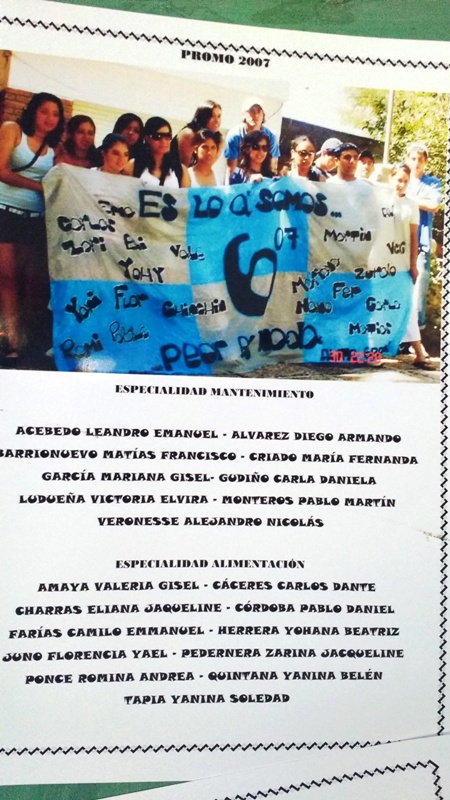 PROMO 2007
ES LO Q' SOMOS...
Emo
Carlos
Zari Eli Vale
YOHY
6 07
Martin
Vero
Yani Flor Chinchin
Zurdo
Fer
Nano
Carla
Romi Pablo
Matias
...peor q' nada.
ESPECIALIDAD MANTENIMIENTO
ACEBEDO LEANDRO EMANUEL - ALVAREZ DIEGO ARMANDO
BARRIONUEVO MATÍAS FRANCISCO - CRIADO MARÍA FERNANDA
GARCÍA MARIANA GISEL- GUDIÑO CARLA DANIELA
LUDUEÑA VICTORIA ELVIRA - MONTEROS PABLO MARTÍN
VERONESSE ALEJANDRO NICOLÁS
ESPECIALIDAD ALIMENTACIÓN
AMAYA VALERIA GISEL - CÁCERES CARLOS DANTE
CHARRAS ELIANA JAQUELINE - CÓRDOBA PABLO DANIEL
FARÍAS CAMILO EMMANUEL - HERRERA YOHANA BEATRIZ
JUNO FLORENCIA YAEL - PEDERNERA ZARINA JACQUELINE
PONCE ROMINA ANDREA - QUINTANA YANINA BELÉN
TAPIA YANINA SOLEDAD